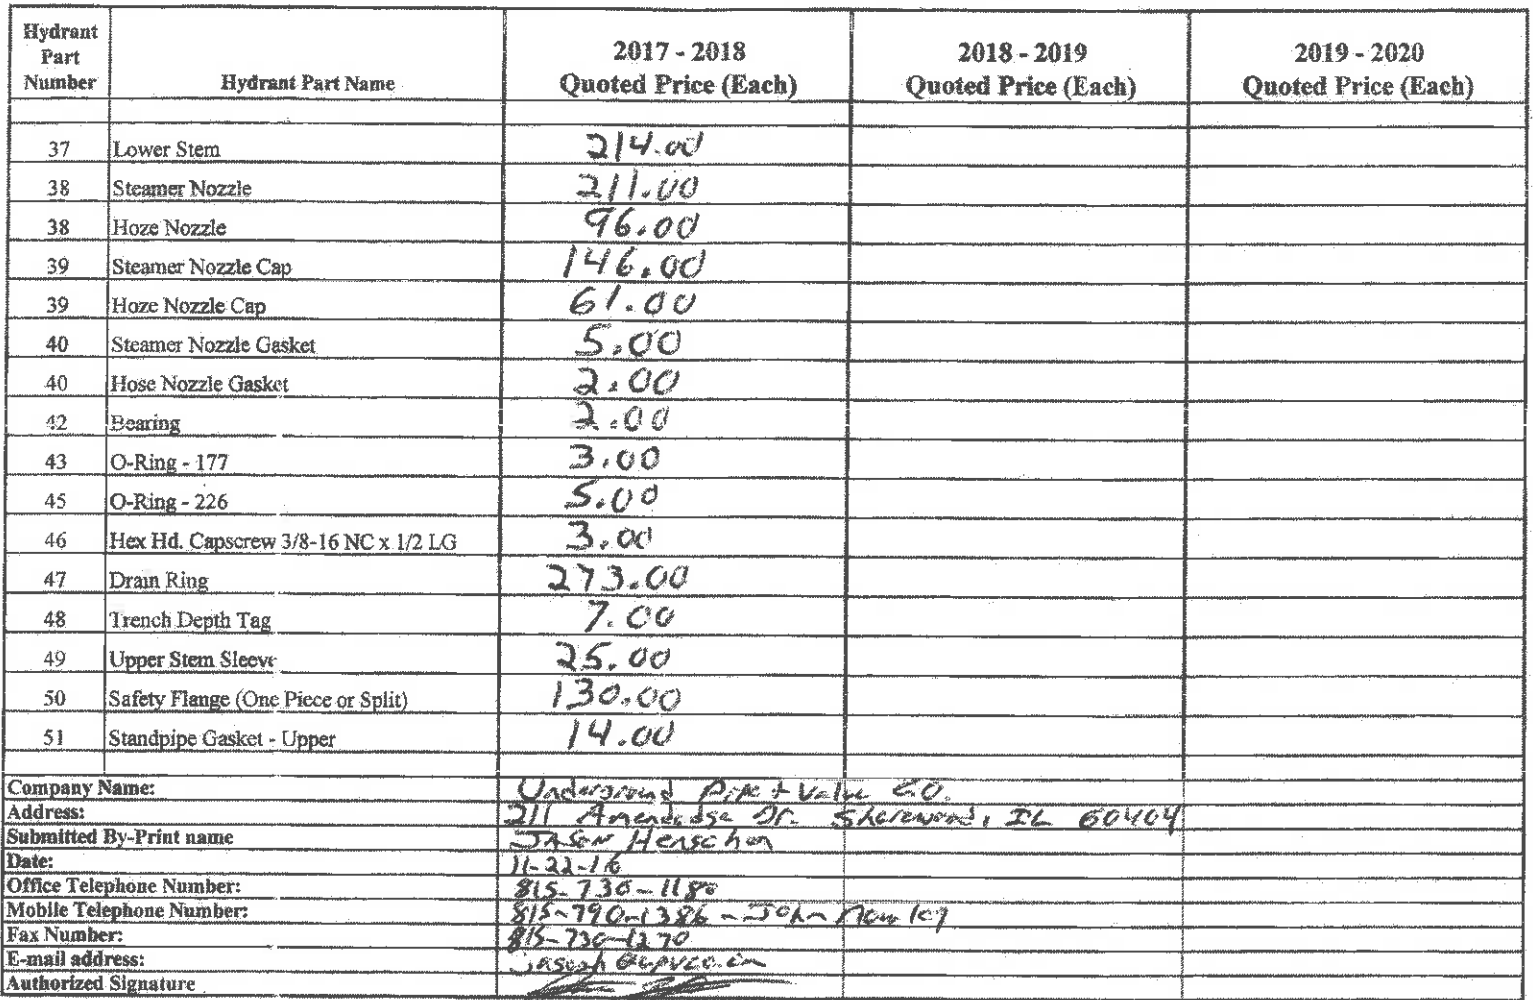 Hydrant Part Number Hydrant Part Name 2017 - 2018 Quoted Price (Each) 2018 - 2019 Quoted Price (Each) 2019 - 2020 Quoted Price (Each)
37 Lower Stem 214.00
38 Steamer Nozzle 211.00
38 Hoze Nozzle 96.00
39 Steamer Nozzle Cap 146.00
39 Hoze Nozzle Cap 61.00
40 Steamer Nozzle Gasket 5.00
40 Hose Nozzle Gasket 2.00
42 Bearing 2.00
43 O-Ring - 177 3.00
45 O-Ring - 226 5.00
46 Hex Hd. Capscrew 3/8-16 NC x 1/2 LG 3.00
47 Drain Ring 273.00
48 Trench Depth Tag 7.00
49 Upper Stem Sleeve 25.00
50 Safety Flange (One Piece or Split) 130.00
51 Standpipe Gasket - Upper 14.00
Company Name: Underground Pipe + Valve CO.
Address: 211 Amendodge Dr. Shorewood, IL 60404
Submitted By-Print name JASON Henschen
Date: 11-22-16
Office Telephone Number: 815-730-1180
Mobile Telephone Number: 815-790-1386 - John
Fax Number: 815-730-1270
E-mail address:
Authorized Signature